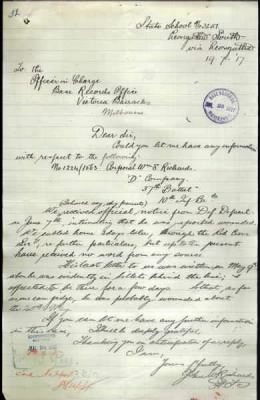 State School No 3251
Leongatha South
via Leongatha
14.7.17
To the
Officer in Charge
Base Records Office
Victoria Barracks
Melbourne
Dear Sir,
Could you let me have any information
with respect to the following
Corporal Wm S. Richards.
"D" Company.
37th Battal
10th Inf. Bri
(Believed my parents)
We received official notice from Def. Depart.
on June intimating that he was reported wounded.
We cabled home 3 days later, through the Red Cross
for further particulars, but up to the present
have received no word from any source.
His last letter to me was written on May 9th
when he was evidently in billets behind the lines; &
expected to be there for a few days so that, as far
as we can judge, he was probably wounded about
the
If you can let me have any further information
in this case, I shall be deeply grateful.
Thanking you in anticipation of a reply,
I am,
Yours faithfully
John Richards